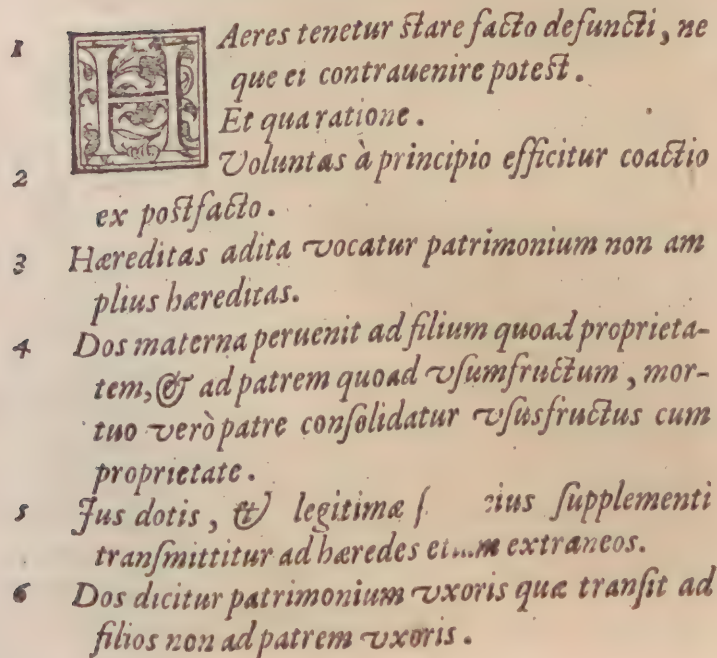 1 HAeres tenetur stare facto defuncti, ne
que ei contrauenire potest.
Et qua ratione.
2 Voluntas à principio efficitur coactio
ex postfacto.
3 Hæreditas adita vocatur patrimonium non am
plius hæreditas.
4 Dos materna peruenit ad filium quoad proprieta-
tem, & ad patrem quoad vſumfructum, mor-
tuo verò patre conſolidatur vſusfructus cum
proprietate.
5 Jus dotis, & legitimæ ſupplementi
tranſmittitur ad hæredes extraneos.
6 Dos dicitur patrimonium vxoris quæ tranſit ad
filios non ad patrem vxoris.